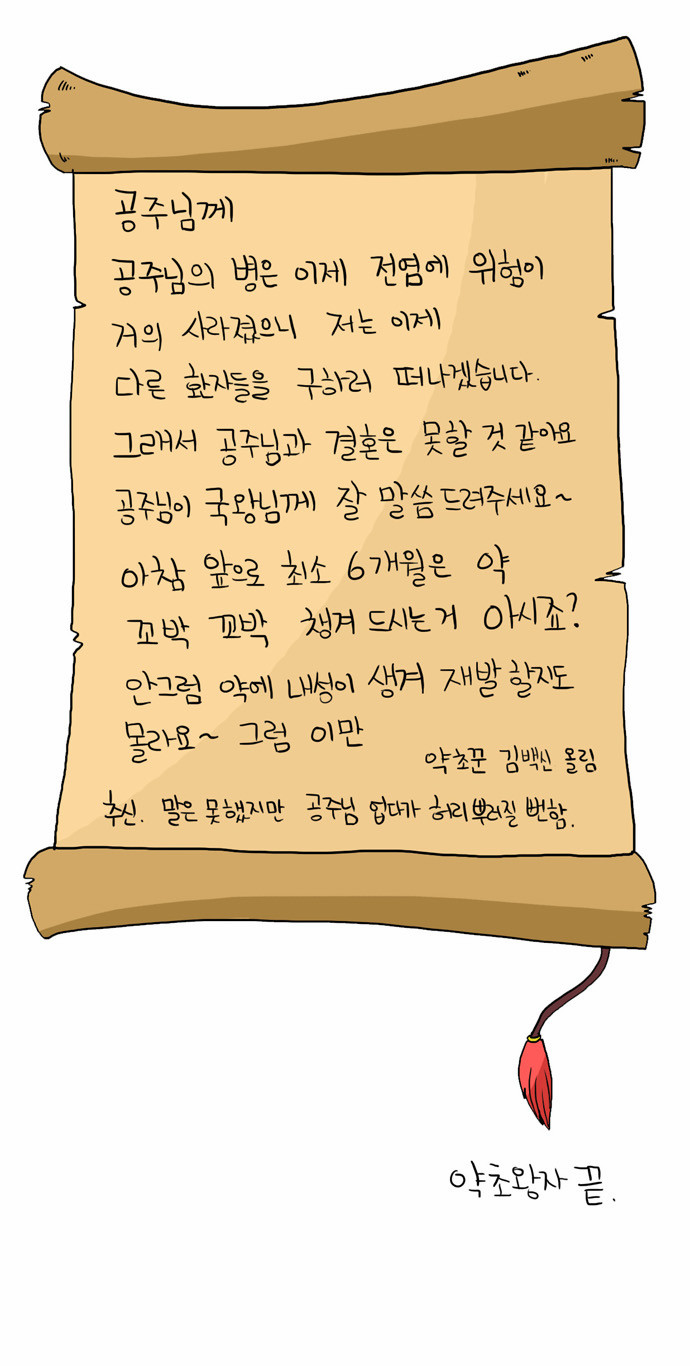 공주님께
공주님의 병은 이제 전염에 위험이
거의 사라졌으니 저는 이제
다른 환자들을 구하러 떠나겠습니다.
그래서 공주님과 결혼은 못할 것 같아요
공주님이 국왕님께 잘 말씀드려주세요~
아참 앞으로 최소 6개월은 약
꼬박 꼬박 챙겨 드시는거 아시죠?
안그럼 약에 내성이 생겨 재발 할지도
몰라요~ 그럼 이만
약초꾼 김백신 올림
추신. 말은 못했지만 공주님 업다가 허리 뿌러질 뻔함.
약초왕자 끝.